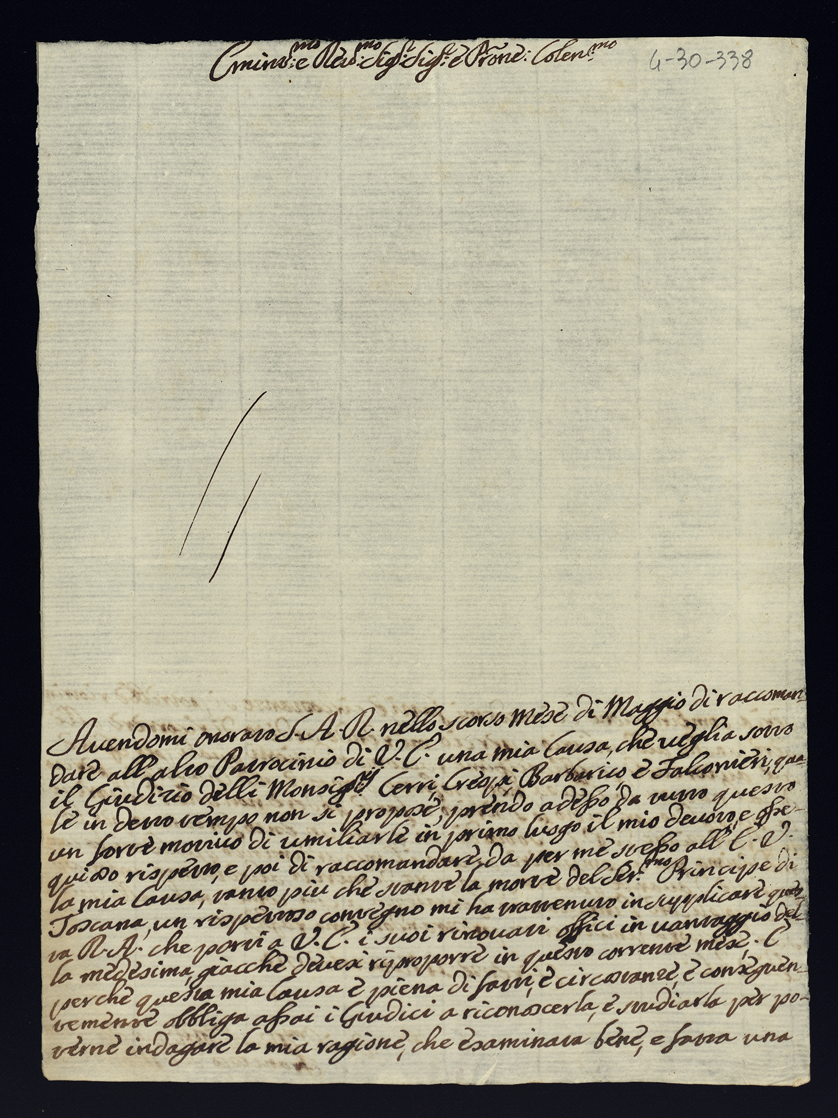 Emin:mo e Reu:mo Sig:r Sig:r e Prōne: Colen:mo
4-30-338
Auendomi onorato S. A. R. nello scorso mese di Maggio di raccoman-
dare all'alto Patrocinio di V. E. una mia Causa, che ueglia sotto
il Giudizio delli Monsig:ri Cerri, Crespi, Barbarico e Falconieri, qua-
le in detto tempo non si propose, prendo adesso da tutto questo
un forte motiuo di umiliarle in primo luogo il mio deuoto, e osse-
quioso rispetto, e poi di raccomandare da per me stesso all'E. V.
la mia Causa, tanto più che stante la morte del Ser:mo Principe di
Toscana, un rispettoso contegno mi ha trattenuto in supplicare ques-
ta R. A. che porti a V. E. i suoi rinouati offici in uantaggio del-
la medesima, giacche deuesi riproporre in questo corrente mese. E
perche questa mia Causa è piena di fatti, e circostanze, e conseguen-
temente obbliga assai i Giudici a riconoscerla, e studiarla per po-
terne indagare la mia ragione, che esaminata bene, e fatta una